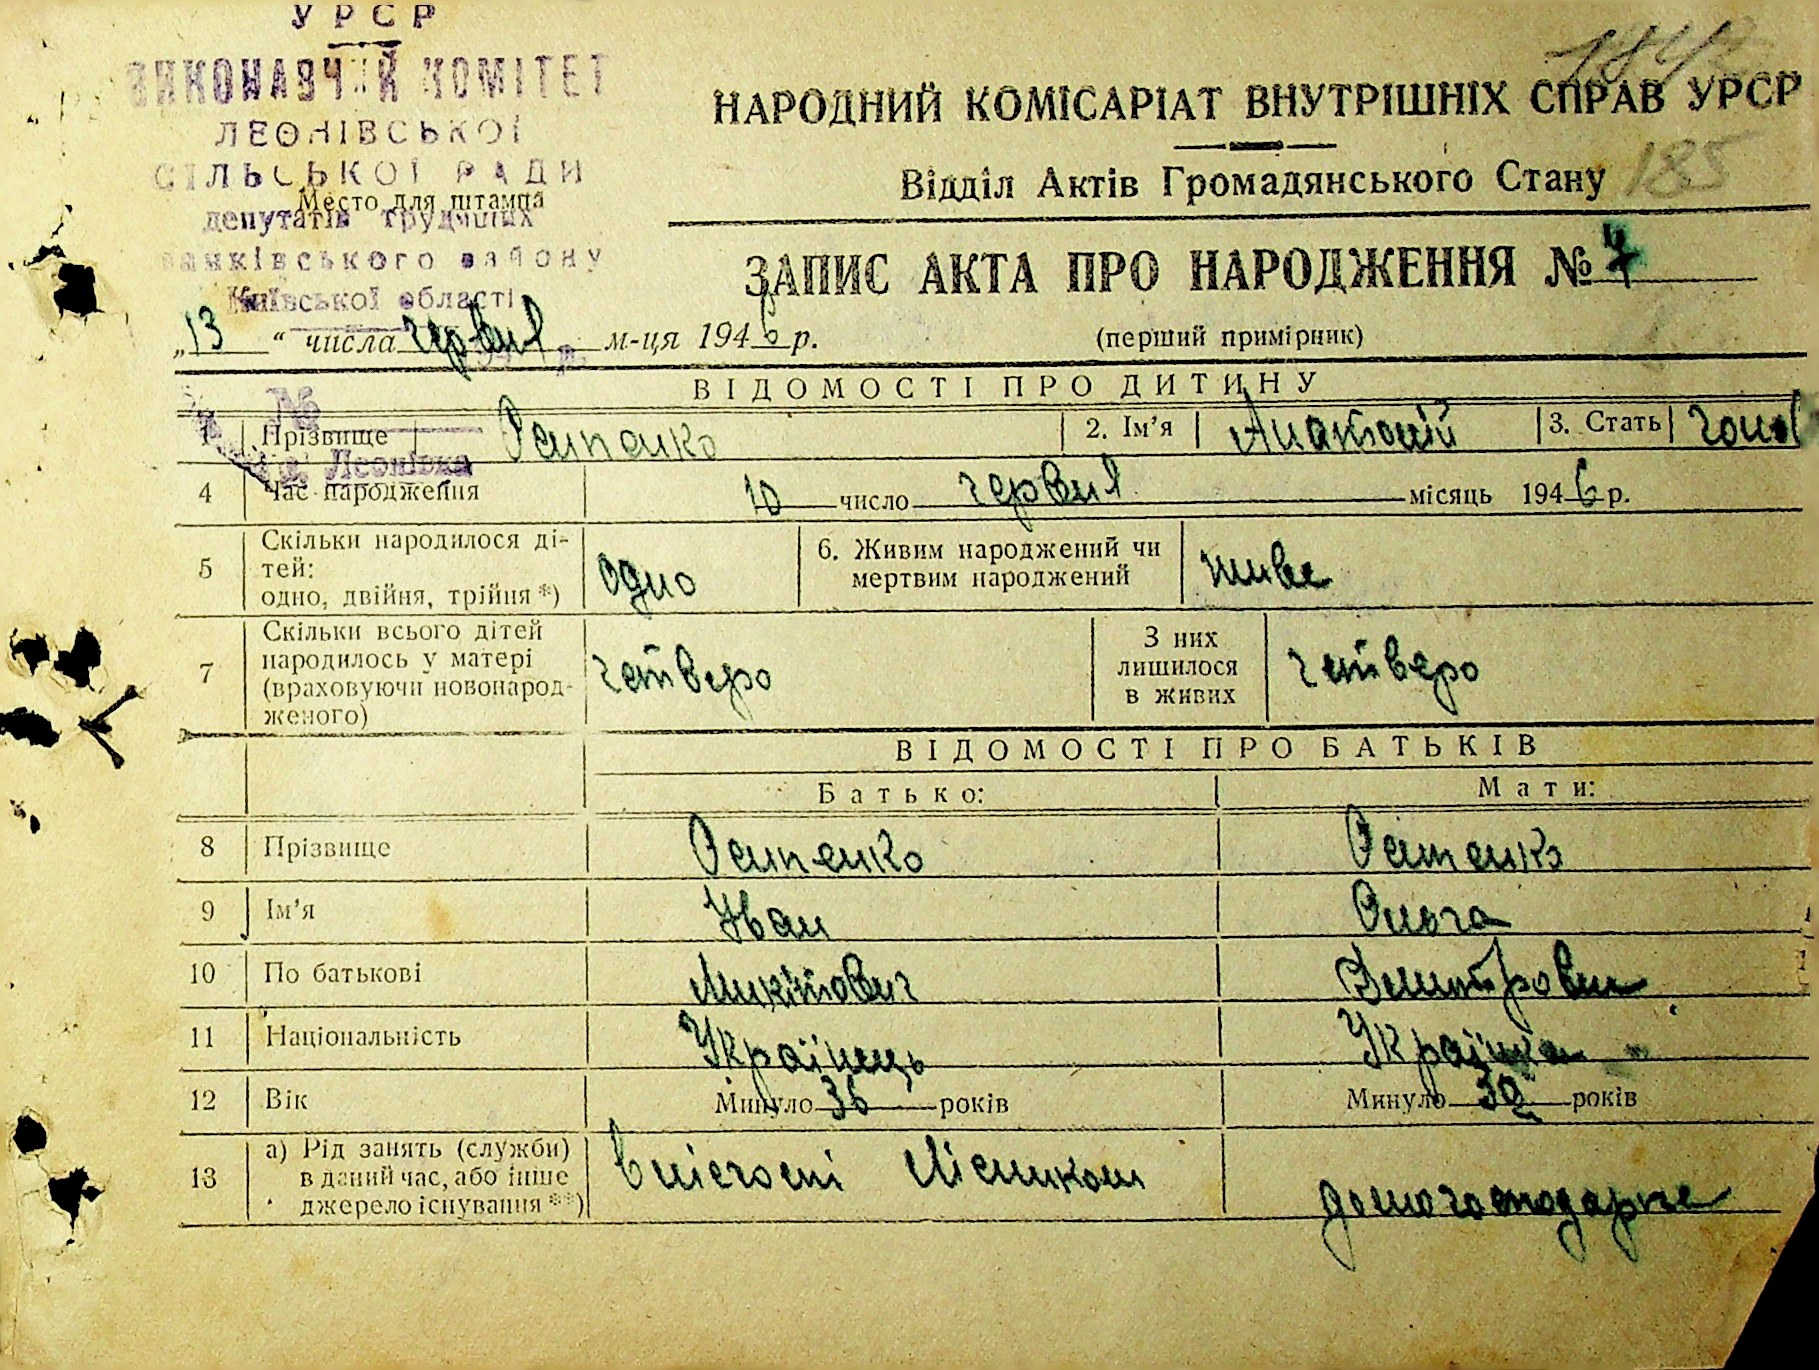 УРСР
ВИКОНАВЧИЙ КОМІТЕТ
ЛЕОНІВСЬКОЇ
СІЛЬСЬКОЇ РАДИ
Место для штампа
депутатів трудящих
району
Київської області
НАРОДНИЙ КОМІСАРІАТ ВНУТРІШНІХ СПРАВ УРСР
Відділ Актів Громадянського Стану
185
ЗАПИС АКТА ПРО НАРОДЖЕННЯ № 7
„13“ числа червня м-ця 1946 р.
(перший примірник)
ВІДОМОСТІ ПРО ДИТИНУ
№
1 Прізвище 2. Ім'я Анатолій 3. Стать чолов
Леонівка
4 Час народження 10 число червня місяць 1946 р.
5 Скільки народилося ді-
тей:
одно, двійня, трійня *) одно
6. Живим народжений чи
мертвим народжений живе
7 Скільки всього дітей
народилось у матері
(враховуючи новонарод-
женого) четверо
З них
лишилося
в живих четверо
ВІДОМОСТІ ПРО БАТЬКІВ
Батько: Мати:
8 Прізвище
9 Ім'я Іван Ольга
10 По батькові Микітович Дмитровна
11 Національність Українець Українка
12 Вік Минуло 36 років Минуло років
13 а) Рід занять (служби)
в даний час, або інше
джерело існування **)
в лісгоспі Лісником домогосподарка